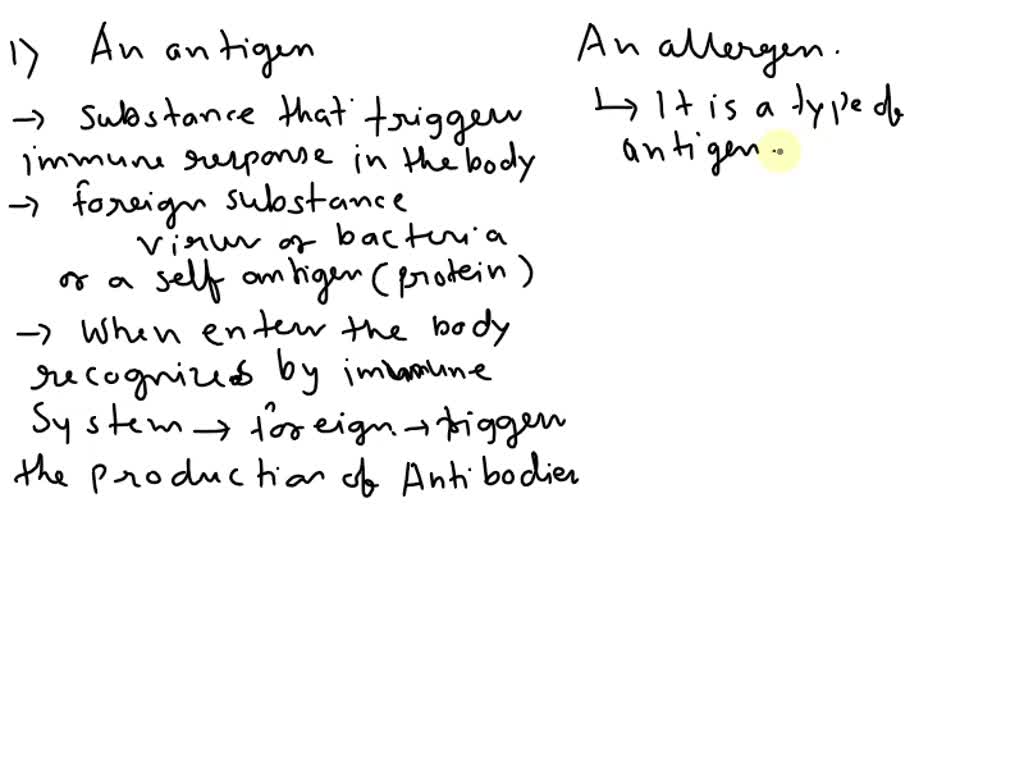 1) An antigen
→ substance that triggers
immune response in the body
→ foreign substance
virus or bacteria
or a self antigen (protein)
→ When enters the body
recognizes by immune
System → foreign → triggers
the production of Antibodies
An allergen.
↳ It is a type of
antigen.